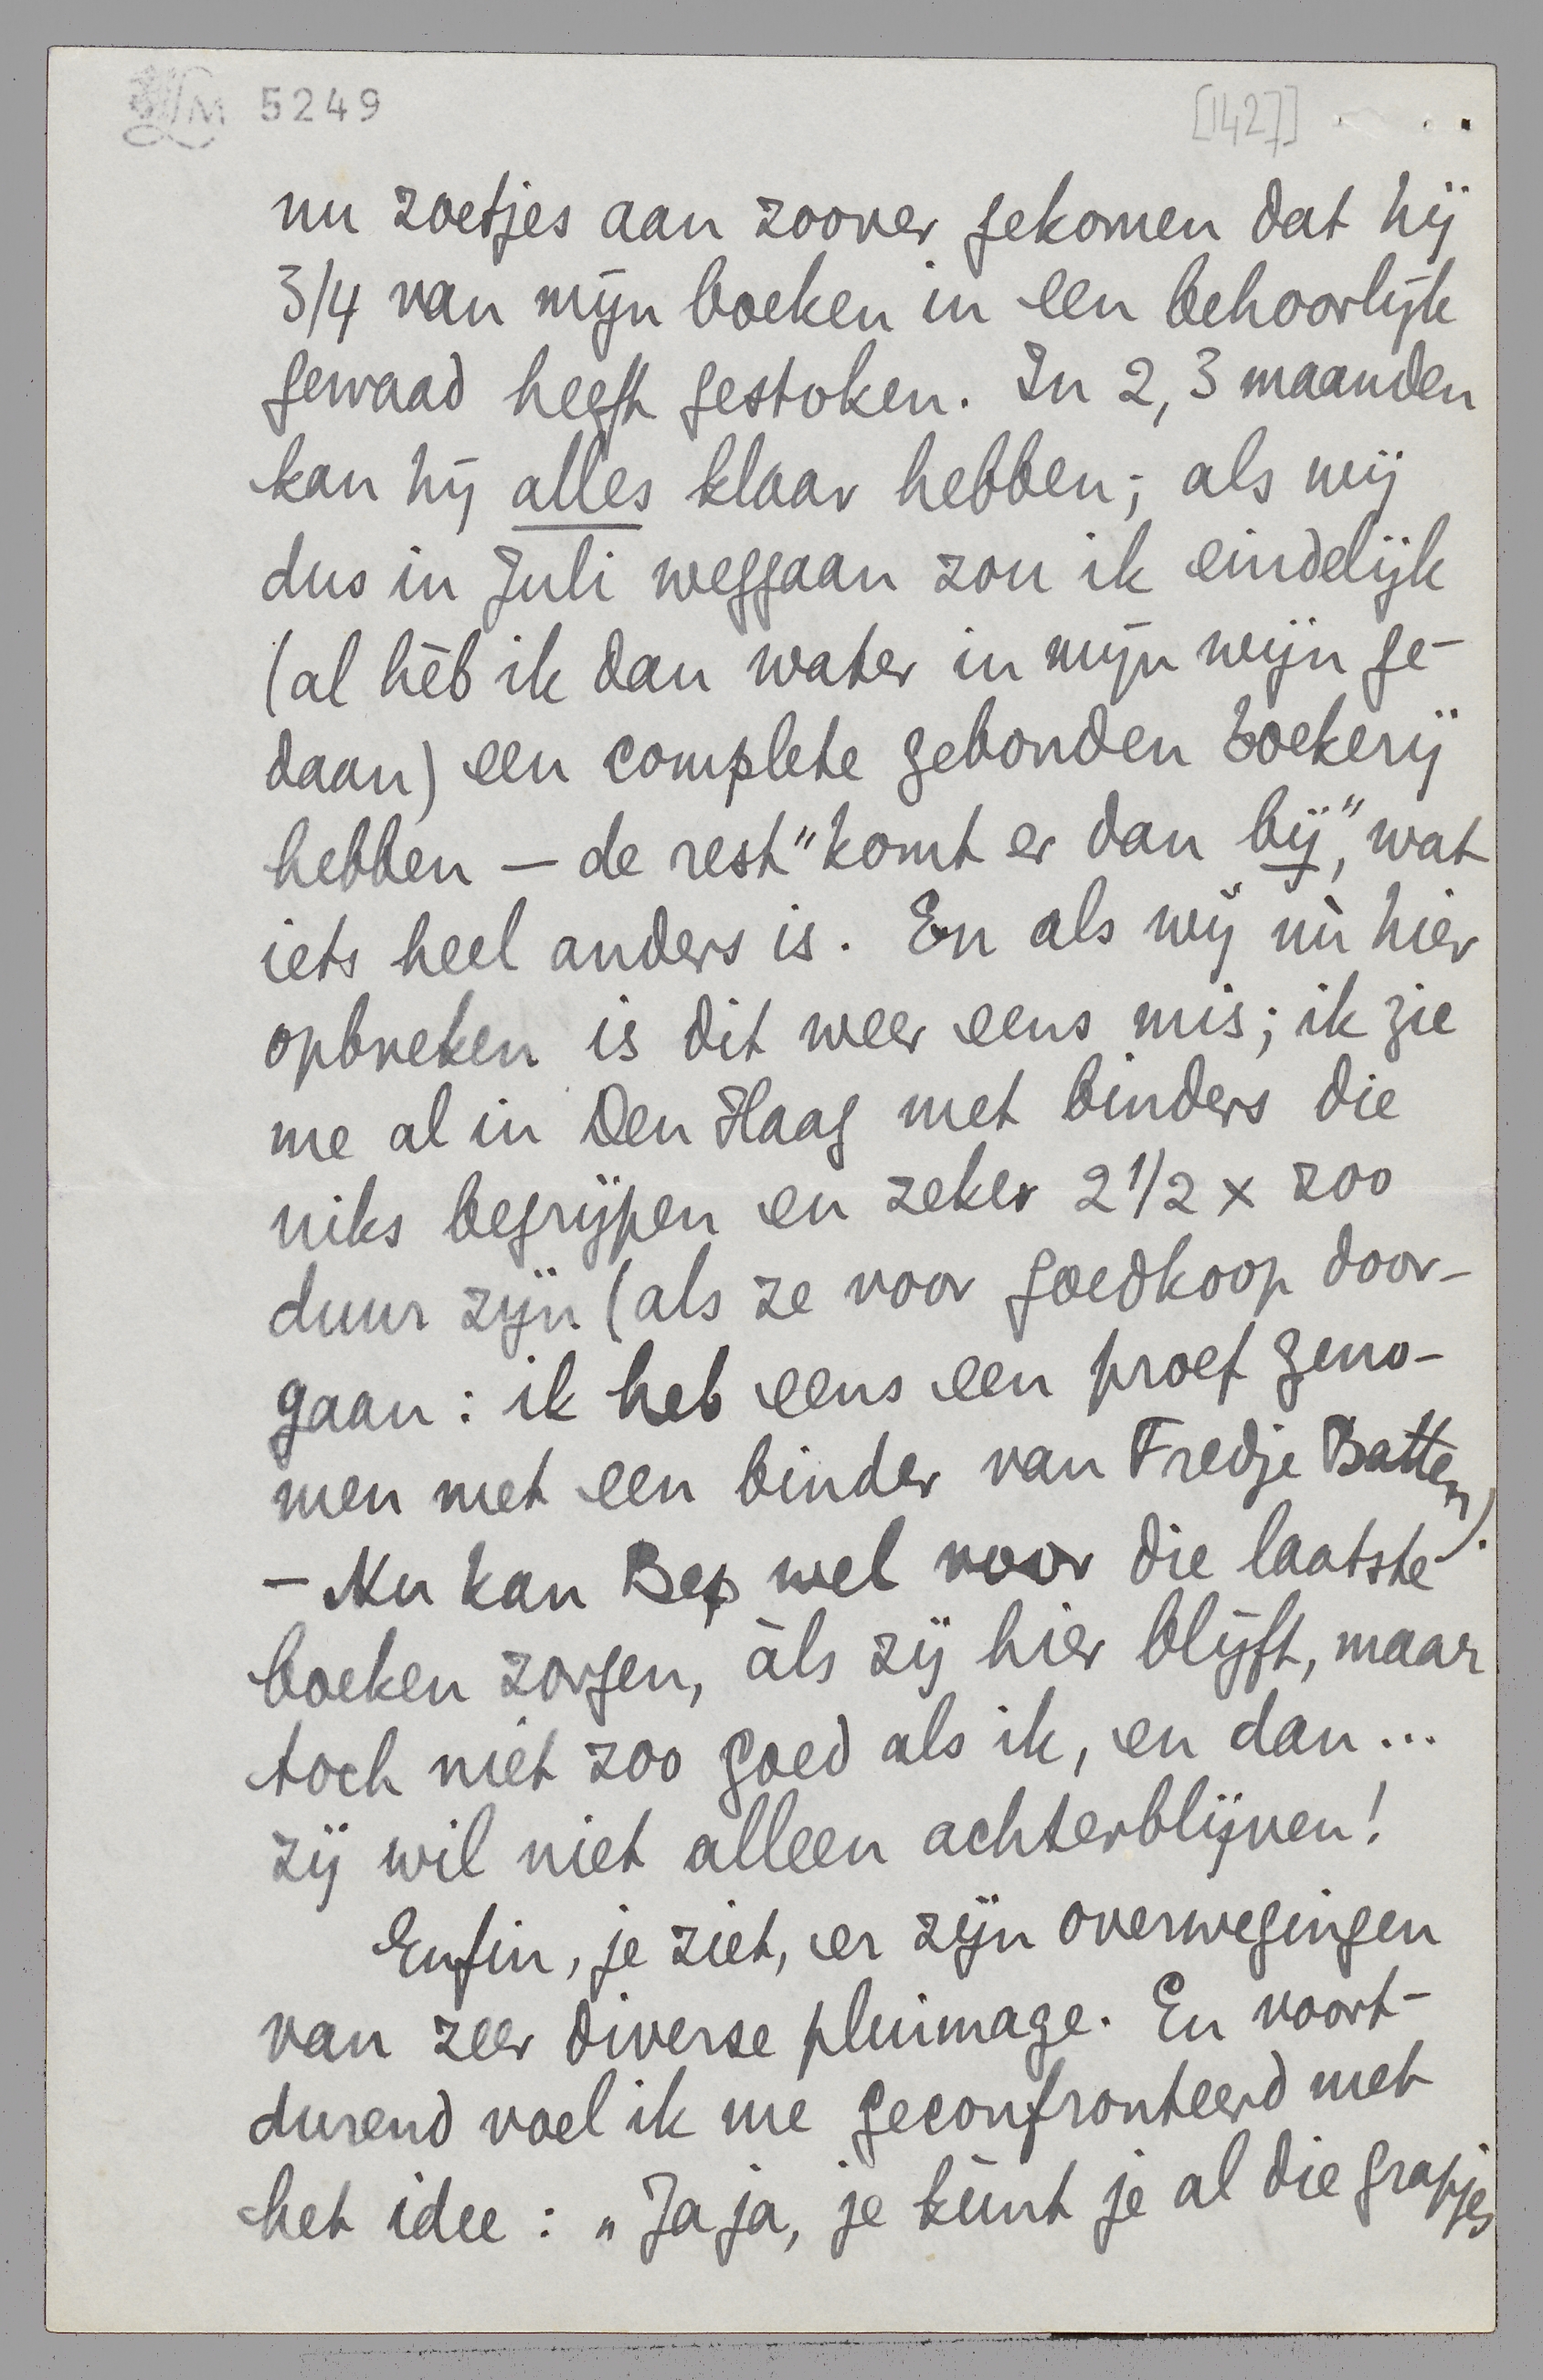 LM 5249
[1427]
nu zoetjes aan zoover gekomen dat hij
3/4 van mijn boeken in een behoorlijk
gewaad heeft gestoken. In 2, 3 maanden
kan hij alles klaar hebben; als wij
dus in Juli weggaan zou ik eindelijk
(al hèb ik dan water in mijn wijn ge-
daan) een complete gebonden boekerij
hebben – de rest "komt er dan bij", wat
iets heel anders is. En als wij nù hier
opbreken is dit weer eens mis; ik zie
me al in Den Haag met binders die
niks begrijpen en zeker 2 1/2 x zoo
duur zijn (als ze voor goedkoop door-
gaan: ik heb eens een proef geno-
men met een binder van Fredje Batten).
– Nu kan Bep wel voor die laatste
boeken zorgen, àls zij hier blijft, maar
toch niet zoo goed als ik, en dan...
zij wil niet alleen achterblijven!
Enfin, je ziet, er zijn overwegingen
van zeer diverse pluimage. En voort-
durend voel ik me geconfronteerd met
het idee: „Ja ja, je kùnt je al die grapjes